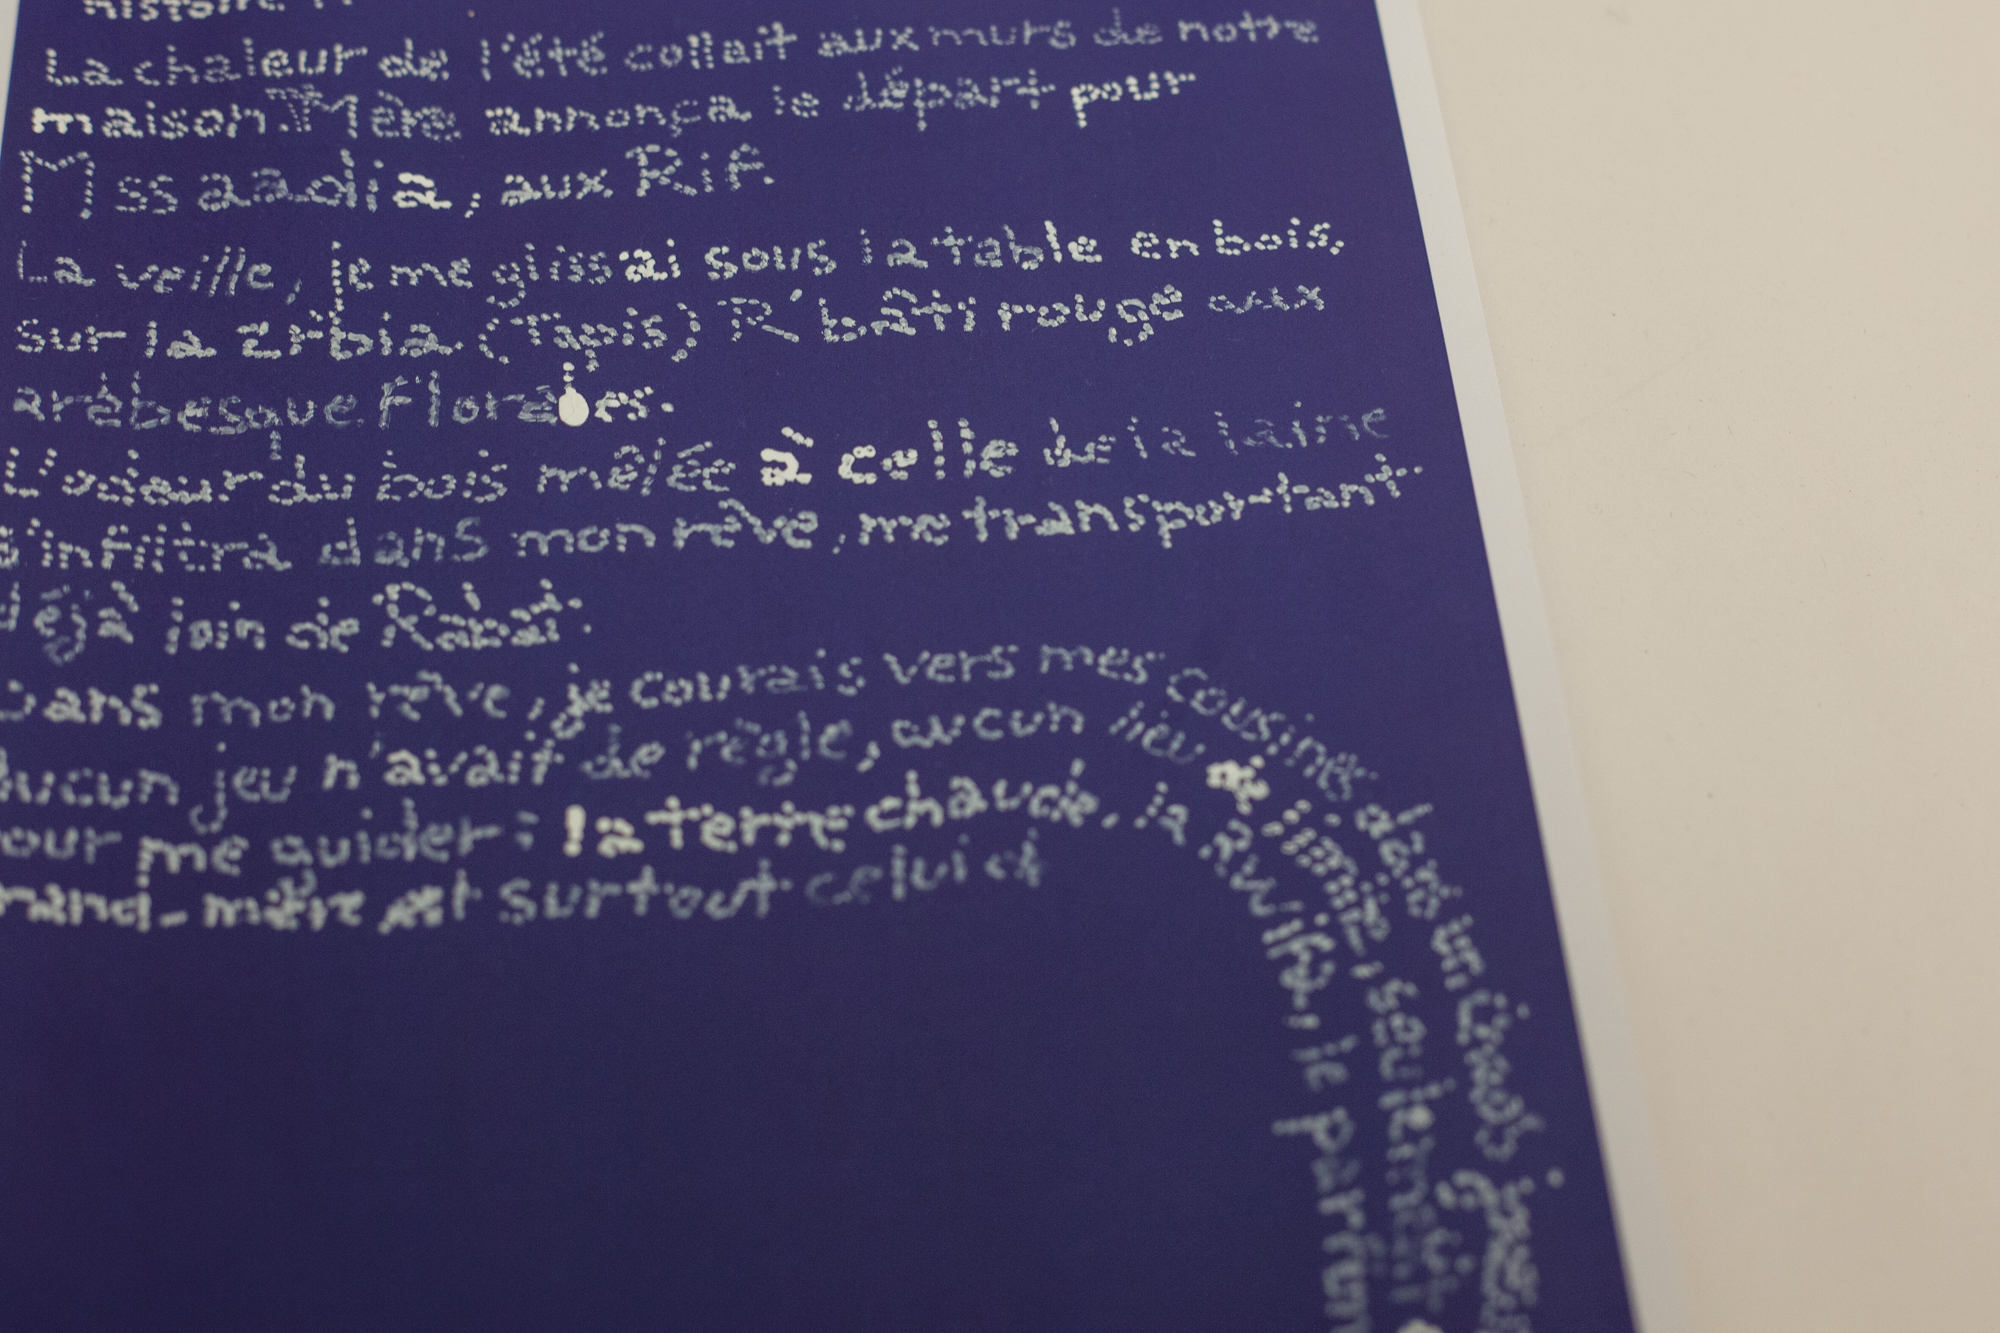 histoire
La chaleur de l'été collait aux murs de notre
maison. Mère annonça le départ pour
Mssaadia, aux Rif.
La veille, je me glissai sous la table en bois,
sur la zrbia (Tapis) R'bâti rouge aux
arèbesque Florales.
L'odeur du bois mêlée à celle de la laine
s'infiltra dans mon rêve, me transportant
déjà loin de Rabat.
Dans mon rêve, je courais vers mes cousines, dans un
Aucun jeu n'avait de règle, aucun lieu de limite, seulement
pour me guider : la terre chaude, la
grand-mère et surtout celui d